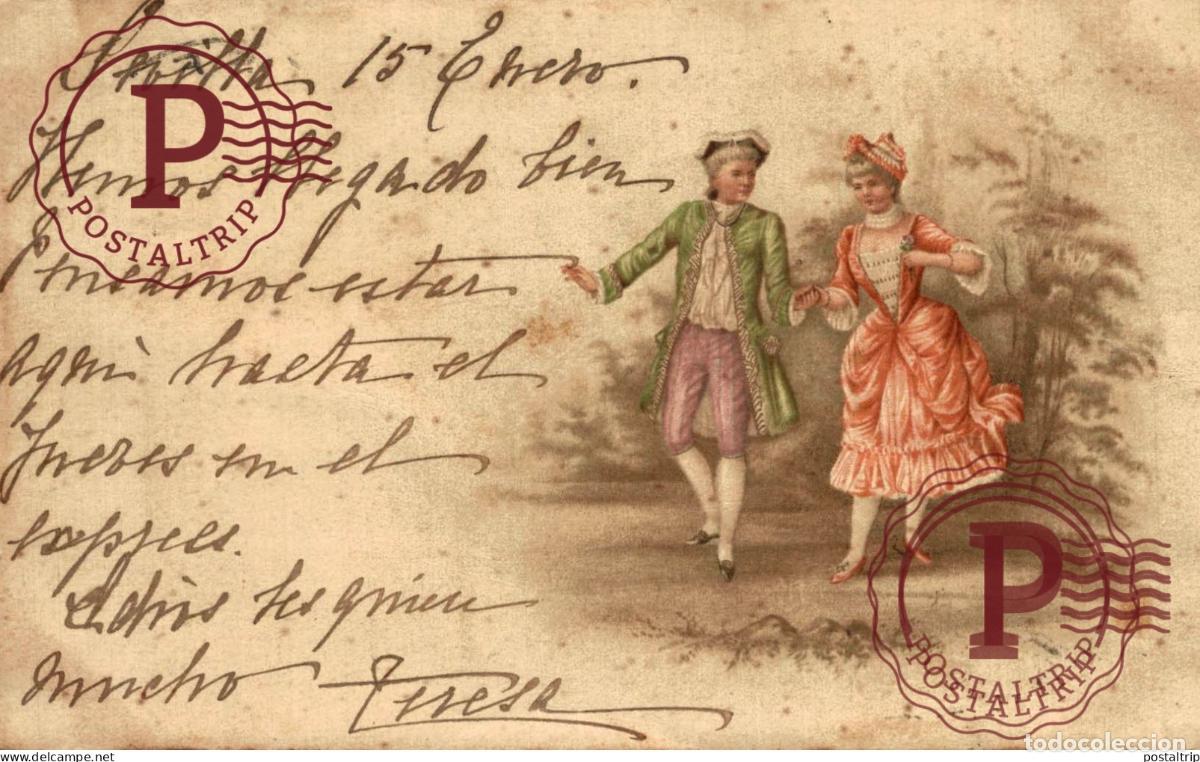 Sevilla 15 Enero.
Hemos llegado bien
pensamos estar
aquí hasta el
Jueves en el
exprees.
Adios les quiere
mucho Teresa
P
POSTALTRIP
P
POSTALTRIP
POSTALTRIP
todocoleccion
https://www.delcampe.net
postaltrip